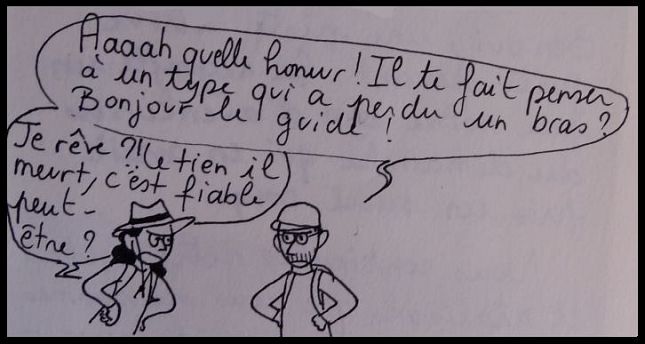 Aaaah quelle horreur! Il te fait penser
à un type qui a perdu un bras?
Bonjour le guide!
Je rêve?! Le tien il
meurt, c'est fiable
peut-
être?